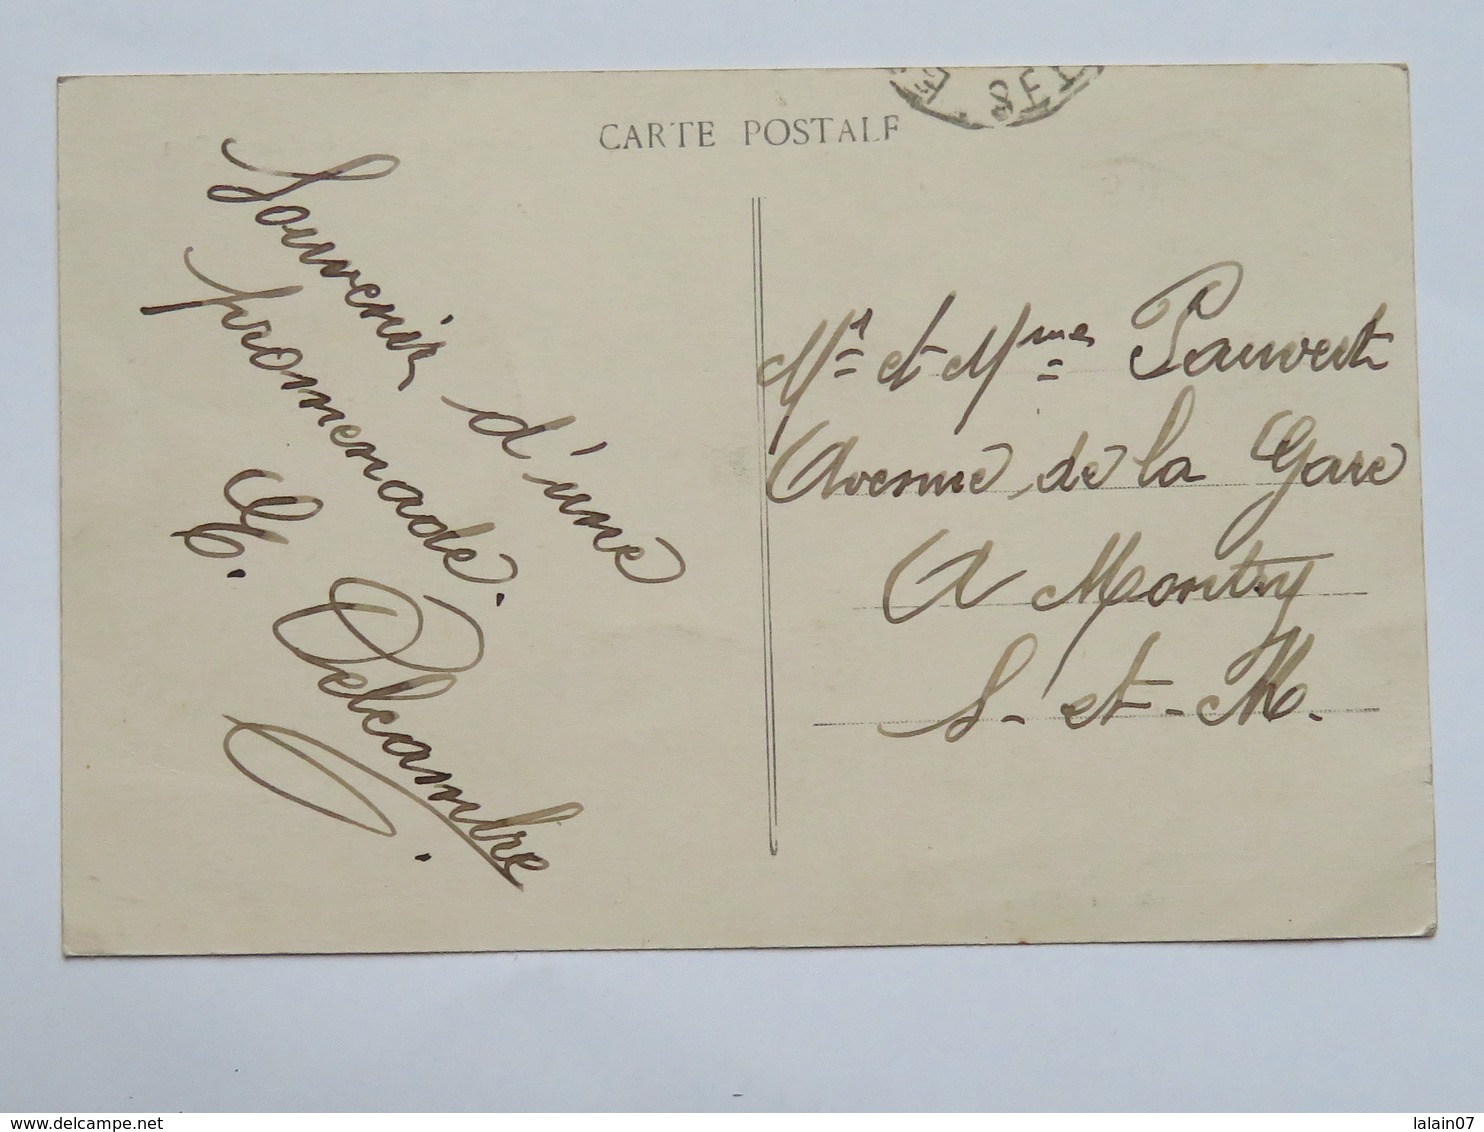 CARTE POSTALE
Souvenir d'une
promenade.
E. Delcambre
Mr et Mme Pauvert
Avenue de la Gare
A Montry
S-et-M.
www.delcampe.net
lalain07